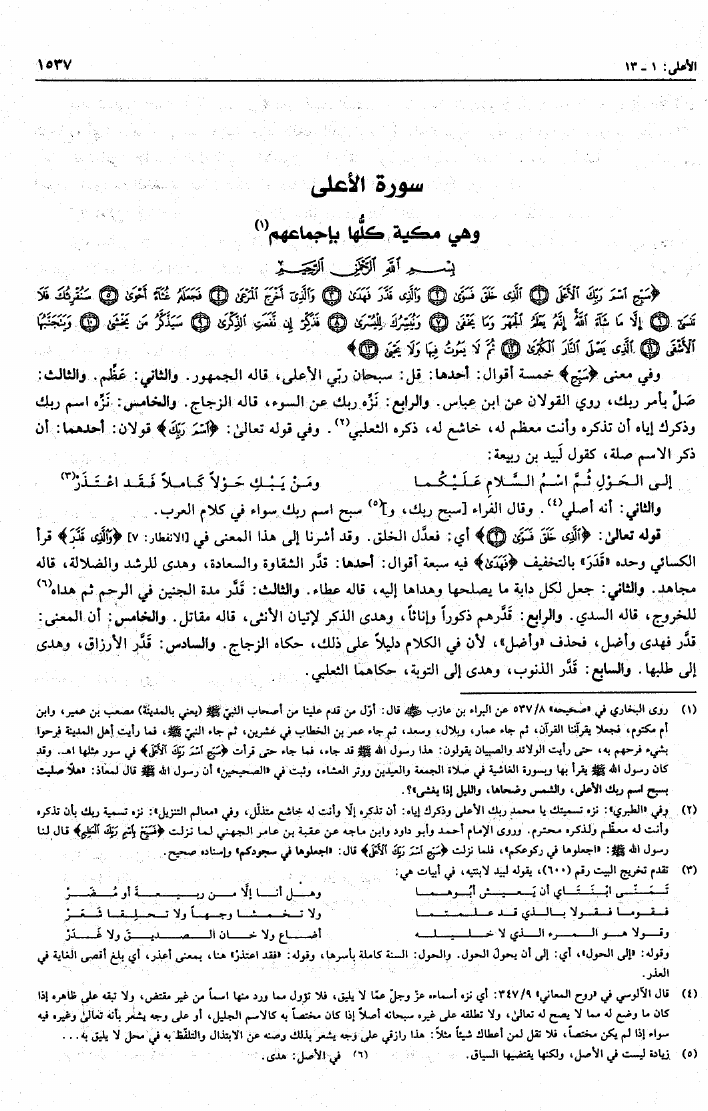 الأعلى: ١ - ١٣
١٥٣٧
سورة الأعلى
وهي مكية كلُّها بإجماعهم(١)
بِسْمِ اللَّهِ الرَّحْمَنِ الرَّحِيمِ
﴿سَبِّحِ اسْمَ رَبِّكَ الْأَعْلَى ۝١ الَّذِي خَلَقَ فَسَوَّى ۝٢ وَالَّذِي قَدَّرَ فَهَدَى ۝٣ وَالَّذِي أَخْرَجَ الْمَرْعَى ۝٤ فَجَعَلَهُ غُثَاءً أَحْوَى ۝٥ سَنُقْرِئُكَ فَلَا
تَنسَى ۝٦ إِلَّا مَا شَاءَ اللَّهُ إِنَّهُ يَعْلَمُ الْجَهْرَ وَمَا يَخْفَى ۝٧ وَنُيَسِّرُكَ لِلْيُسْرَى ۝٨ فَذَكِّرْ إِن نَّفَعَتِ الذِّكْرَى ۝٩ سَيَذَّكَّرُ مَن يَخْشَى ۝١٠ وَيَتَجَنَّبُهَا
الْأَشْقَى ۝١١ الَّذِي يَصْلَى النَّارَ الْكُبْرَى ۝١٢ ثُمَّ لَا يَمُوتُ فِيهَا وَلَا يَحْيَى ۝١٣﴾
وفي معنى ﴿سَبِّحِ﴾ خمسة أقوال: أحدها: قل: سبحان ربّي الأعلى، قاله الجمهور. والثاني: عَظِّم. والثالث:
صَلِّ بأمر ربك، روي القولان عن ابن عباس. والرابع: نَزِّه ربك عن السوء، قاله الزجاج. والخامس: نَزِّه اسم ربك
وذكرك إياه أن تذكره وأنت معظم له، خاشع له، ذكره الثعلبي(٢). وفي قوله تعالى: ﴿اسْمَ رَبِّكَ﴾ قولان: أحدهما: أن
ذكر الاسم صلة، كقول لَبيد بن ربيعة:
إلى الحَوْلِ ثُمَّ اسْمُ السَّلامِ عَلَيْكُمَا ومَنْ يَبْكِ حَوْلاً كَامِلاً فَقَد اعْتَذَرْ(٣)
والثاني: أنه أصلي(٤). وقال الفراء [سبح ربك، و](٥) سبح اسم ربك سواء في كلام العرب.
قوله تعالى: ﴿الَّذِي خَلَقَ فَسَوَّى ۝٢﴾ أي: فعدَّل الخلق. وقد أشرنا إلى هذا المعنى في [الانفطار: ٧] ﴿وَالَّذِي قَدَّرَ﴾ قرأ
الكسائي وحده «قَدَرَ» بالتخفيف ﴿فَهَدَى﴾ فيه سبعة أقوال: أحدها: قدَّر الشقاوة والسعادة، وهدى للرشد والضلالة، قاله
مجاهد. والثاني: جعل لكل دابة ما يصلحها وهداها إليه، قاله عطاء. والثالث: قَدَّر مدة الجنين في الرحم ثم هداه(٦)
للخروج، قاله السدي. والرابع: قَدَّرهم ذكوراً وإناثاً، وهدى الذكر لإتيان الأنثى، قاله مقاتل. والخامس: أن المعنى:
قدَّر فهدى وأضل، فحذف «وأضل»، لأن في الكلام دليلاً على ذلك، حكاه الزجاج. والسادس: قَدَّر الأرزاق، وهدى
إلى طلبها. والسابع: قَدَّر الذنوب، وهدى إلى التوبة، حكاهما الثعلبي.
(١) روى البخاري في «صحيحه» ٥٣٧/٨ عن البراء بن عازب ﷺ قال: أوّل من قدم علينا من أصحاب النبيّ ﷺ (يعني بالمدينة) مصعب بن عمير، وابن
أم مكتوم، فجعلا يقرآننا القرآن، ثم جاء عمار، وبلال، وسعد، ثم جاء عمر بن الخطاب في عشرين، ثم جاء النبيّ ﷺ، فما رأيت أهل المدينة فرحوا
بشيء فرحهم به، حتى رأيت الولائد والصبيان يقولون: هذا رسول الله ﷺ قد جاء، فما جاء حتى قرأت ﴿سَبِّحِ اسْمَ رَبِّكَ الْأَعْلَى﴾ في سور مثلها اهـ. وقد
كان رسول الله ﷺ يقرأ بها وبسورة الغاشية في صلاة الجمعة والعيدين ووتر العشاء، وثبت في «الصحيحين» أن رسول الله ﷺ قال لمعاذ: «هلاّ صليت
بسبح اسم ربك الأعلى، والشمس وضحاها، والليل إذا يغشى؟».
(٢) وفي «الطبري»: نزه تسميتك يا محمد ربك الأعلى وذكرك إياه: أن تذكره إلّا وأنت له خاشع متذلّل، وفي «معالم التنزيل»: نزه تسمية ربك بأن تذكره
وأنت له معظّم ولذكره محترم. وروى الإمام أحمد وأبو داود وابن ماجه عن عقبة بن عامر الجهني لما نزلت ﴿فَسَبِّحْ بِاسْمِ رَبِّكَ الْعَظِيمِ﴾ قال لنا
رسول الله ﷺ: «اجعلوها في ركوعكم»، فلما نزلت ﴿سَبِّحِ اسْمَ رَبِّكَ الْأَعْلَى﴾ قال: «اجعلوها في سجودكم» وإسناده صحيح.
(٣) تقدم تخريج البيت رقم (٦٠٠)، يقوله لبيد لابنتيه، في أبيات هي:
تَمَنَّى ابْنَتَاي أن يَعِيش أبُوهما وهل أنا إلّا من ربيعة أو مُضَرْ
فقوما فقولا بالذي قد علمتما ولا تخمشا وجهاً ولا تحلِقا شَعَرْ
وقولا هو المرء الذي لا خليله أضاع ولا خان الصديق ولا غَدَرْ
وقوله: «إلى الحول»، أي: إلى أن يحول الحول. والحول: السنة كاملة بأسرها، وقوله: «فقد اعتذر» هنا، بمعنى أعذر، أي بلغ أقصى الغاية في
العذر.
(٤) قال الآلوسي في «روح المعاني» ٣٤٧/٩: أي نزه أسماءه عزّ وجلّ عمّا لا يليق، فلا تؤول مما ورد منها اسماً من غير مقتض، ولا تبقه على ظاهره إذا
كان ما وضع له مما لا يصح له تعالى، ولا تطلقه على غيره سبحانه أصلاً إذا كان مختصاً به كالاسم الجليل، أو على وجه يشعر بأنه تعالى وغيره فيه
سواء إذا لم يكن مختصاً، فلا تقل لمن أعطاك شيئاً مثلاً: هذا رازقي على وجه يشعر بذلك وصنه عن الابتذال والتلفّظ به في محل لا يليق به...
(٥) زيادة ليست في الأصل، ولكنها يقتضيها السياق. (٦) في الأصل: هدى.